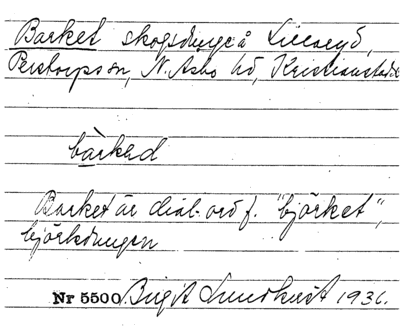 Barket skogsdunge å Lillaryd,
Perstorps sn, N. Åsbo hd, Kristianstads l.
bàrkəd
Barket är dial. ord f. "björket",
björkdungen
Nr 5500 Birgit Lundkvist 1936.